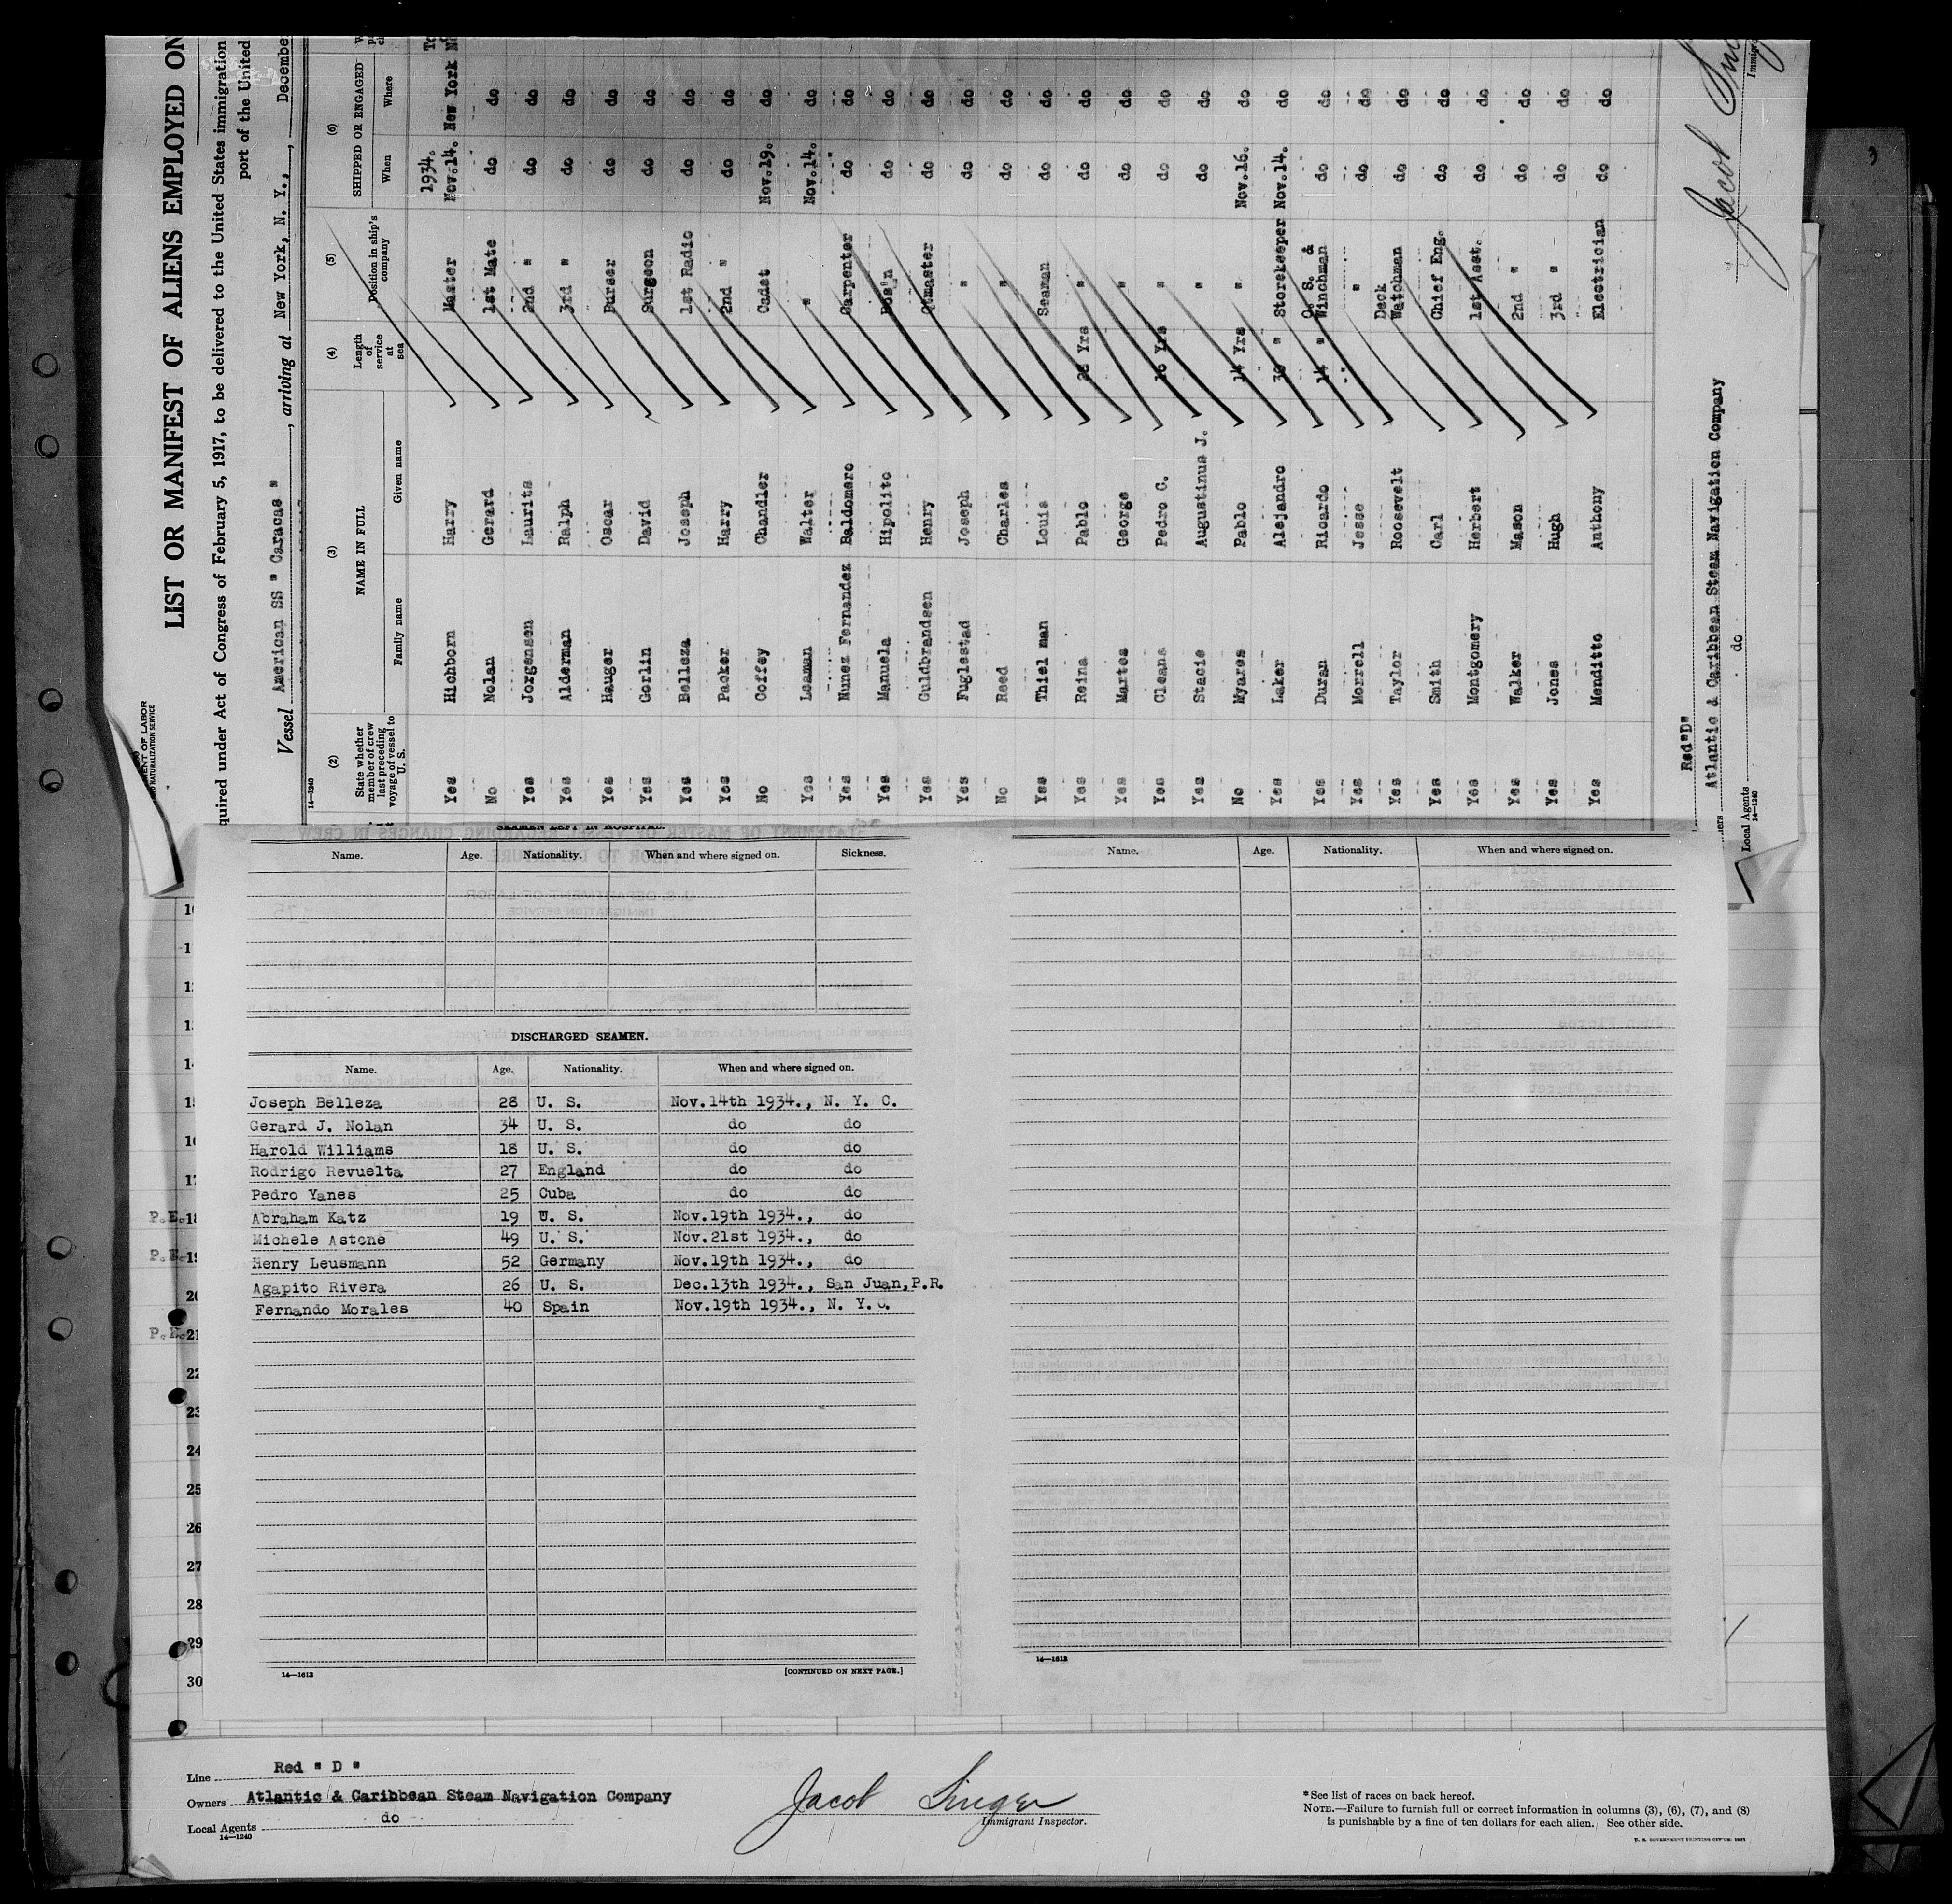 LIST OR MANIFEST OF ALIENS EMPLOYED ON
quired under Act of Congress of February 5, 1917, to be delivered to the United States immigration
port of the United
Vessel American SS " Caracas ", arriving at New York, N. Y., December
14—1240
(2) (3) (4) (5) (6)
State whether member of crew last preceding voyage of vessel to U. S.
NAME IN FULL
Family name Given name
Length of service at sea
Position in ship's company
SHIPPED OR ENGAGED
When Where
1934.
Yes Hichborn Harry Master Nov.14. New York
No Nolan Gerard 1st Mate do do
Yes Jorgensen Laurits 2nd " do do
Yes Alderman Ralph 3rd " do do
Yes Hauger Oscar Purser do do
Yes Gorlin David Surgeon do do
Yes Belleza Joseph 1st Radio do do
Yes Packer Harry 2nd " do do
No Coffey Chandler Cadet Nov.19. do
Yes Leaman Walter " Nov.14. do
Yes Nunez Fernandez Baldomero Carpenter do do
Yes Manuela Hipolito Bos'n do do
Yes Guldbrandsen Henry Qtmaster do do
Yes Fuglestad Joseph " do do
No Reed Charles " do do
Yes Thiel man Louis Seaman do do
Yes Reina Pablo Yrs " do do
Yes Martes George " do do
Yes Cleans Pedro C. 16 Yrs " do do
Yes Stacie Augustinus J. " do do
No Myares Pablo 14 Yrs " Nov.16. do
Yes Laker Alejandro 30 " Storekeeper Nov.14. do
Yes Duran Ricardo 14 " O. S. & Winchman do do
Yes Morrell Jesse " do do
Yes Taylor Roosevelt Deck Watchman do do
Yes Smith Carl Chief Eng. do do
Yes Montgomery Herbert 1st Asst. do do
Yes Walker Mason 2nd " do do
Yes Jones Hugh 3rd " do do
Yes Menditto Anthony Electrician do do
Red"D"
Atlantic & Caribbean Steam Navigation Company
Local Agents do
14—1240
Jacob
SEAMEN LEFT IN HOSPITAL.
Name. Age. Nationality. When and where signed on. Sickness.
DISCHARGED SEAMEN.
Name. Age. Nationality. When and where signed on.
Joseph Belleza 28 U. S. Nov.14th 1934., N. Y. C.
Gerard J. Nolan 34 U. S. do do
Harold Williams 18 U. S. do do
Rodrigo Revuelta 27 England do do
Pedro Yanes 25 Cuba do do
Abraham Katz 19 U. S. Nov.19th 1934., do
Michele Astone 49 U. S. Nov.21st 1934., do
Henry Leusmann 52 Germany Nov.19th 1934., do
Agapito Rivera 26 U. S. Dec.13th 1934., San Juan,P.R.
Fernando Morales 40 Spain Nov.19th 1934., N. Y. C.
14—1613 [CONTINUED ON NEXT PAGE.]
Name. Age. Nationality. When and where signed on.
14—1613
P.E.
P.E.
P.E. 21
22
23
24
25
26
27
28
29
30
Line Red " D "
Owners Atlantic & Caribbean Steam Navigation Company
Local Agents do
14—1240
Jacob Singer
Immigrant Inspector.
*See list of races on back hereof.
NOTE.—Failure to furnish full or correct information in columns (3), (6), (7), and (8)
is punishable by a fine of ten dollars for each alien. See other side.